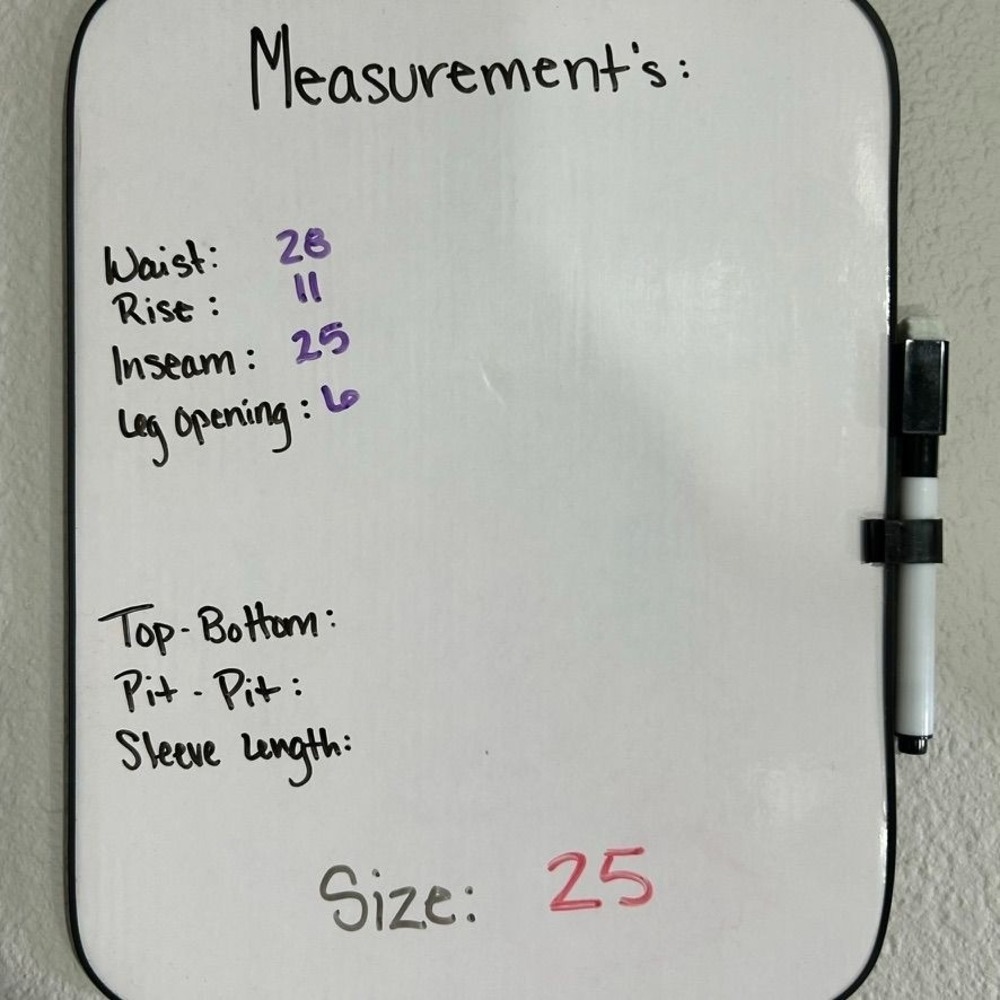 Measurement's:
Waist: 28
Rise: 11
Inseam: 25
Leg opening: 6
Top-Bottom:
Pit-Pit:
Sleeve Length:
Size: 25